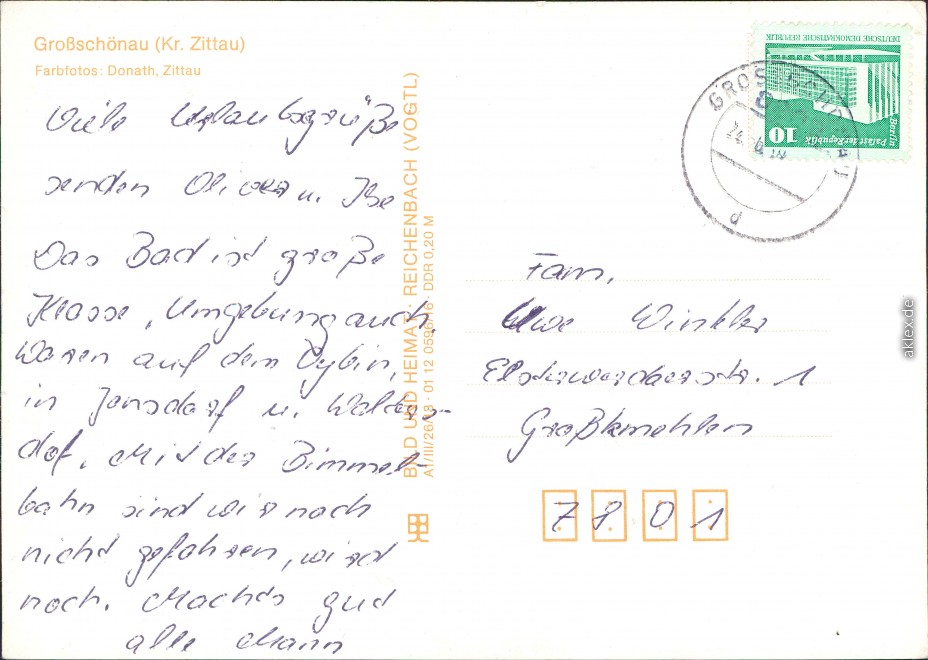 Großschönau (Kr. Zittau)
Farbfotos: Donath, Zittau
Viele Urlaubsgrüße
senden Oliver u. Ilse
Das Bad ist große
Klasse, Umgebung auch.
Waren auf dem Oybin,
in Jonsdorf u. Walters-
dof. Mit der Bimmel-
bahn sind wir noch
nicht gefahren, wird
noch. Machts gut
alle Mann
BILD UND HEIMAT · REICHENBACH (VOGTL)
A1/III/26/13 · 01 12 0596/16 DDR 0,20 M
DEUTSCHE DEMOKRATISCHE REPUBLIK
Berlin
Palast der Republik
10
Fam.
Uwe Winkler
Elsterwerdaerstr. 1
Großkmehlen
7801
aklex.de